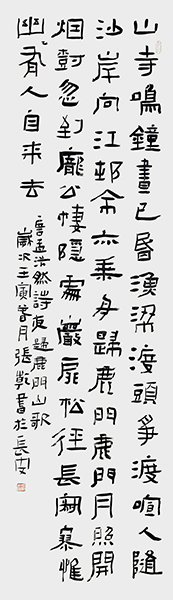 山寺鳴鐘晝已昏漁梁渡頭爭渡喧人隨
沙岸向江邨余亦乘舟歸鹿門鹿門月照開
烟樹忽到龐公棲隱處巖扉松徑長寂寥惟
幽有人自來去
唐孟浩然詩夜歸鹿門山歌
歲次壬寅春月張書於長安